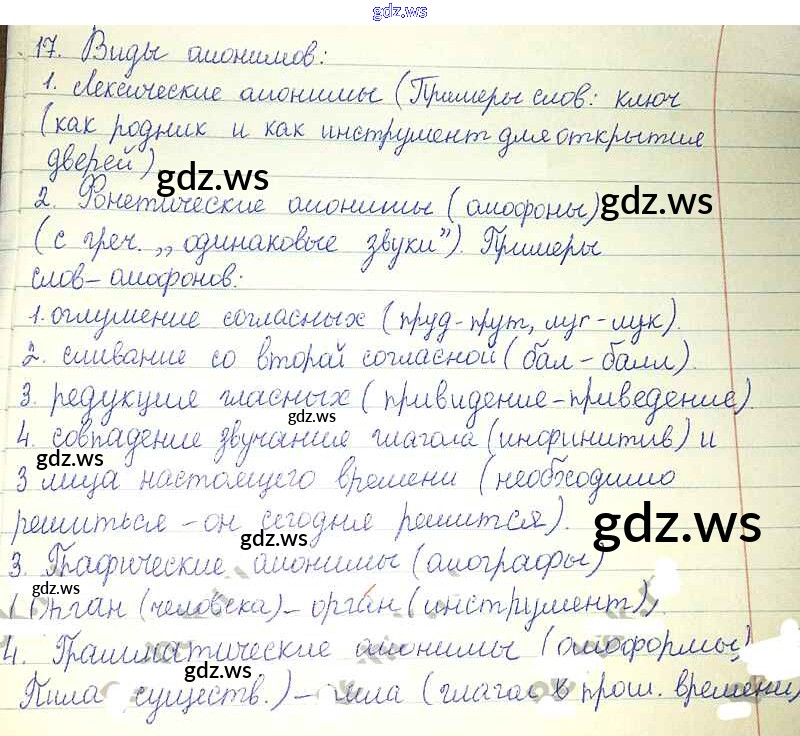 gdz.ws
17. Виды омонимов:
1. Лексические омонимы (Примеры слов: ключ
(как родник и как инструмент для открытия
дверей)
gdz.ws
2. Фонетические омонимы (омофоны)
gdz.ws
(с греч. „одинаковые звуки”). Примеры
слов-омофонов:
1. оглушение согласных (пруд-прут, луг-лук).
2. сливание со второй согласной (бал-балл).
3. редукция гласных (привидение-приведение).
gdz.ws
4. совпадение звучания глагола (инфинитив) и
gdz.ws
3 лица настоящего времени (необходимо
решиться - он сегодня решится).
gdz.ws
gdz.ws
3. Графические омонимы (омографы)
gdz.ws
(Орган (человека) - орган (инструмент),
4. Грамматические омонимы (омоформы)
gdz.ws
Пила существ.) - пила (глагол в прош. времени)